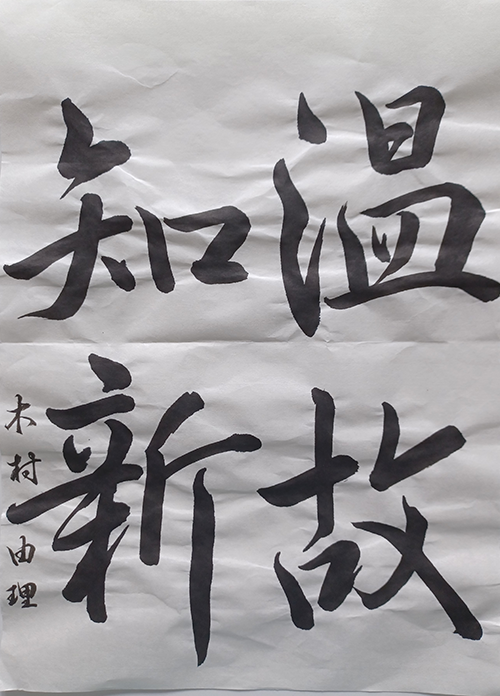 温故
知新
木村由理